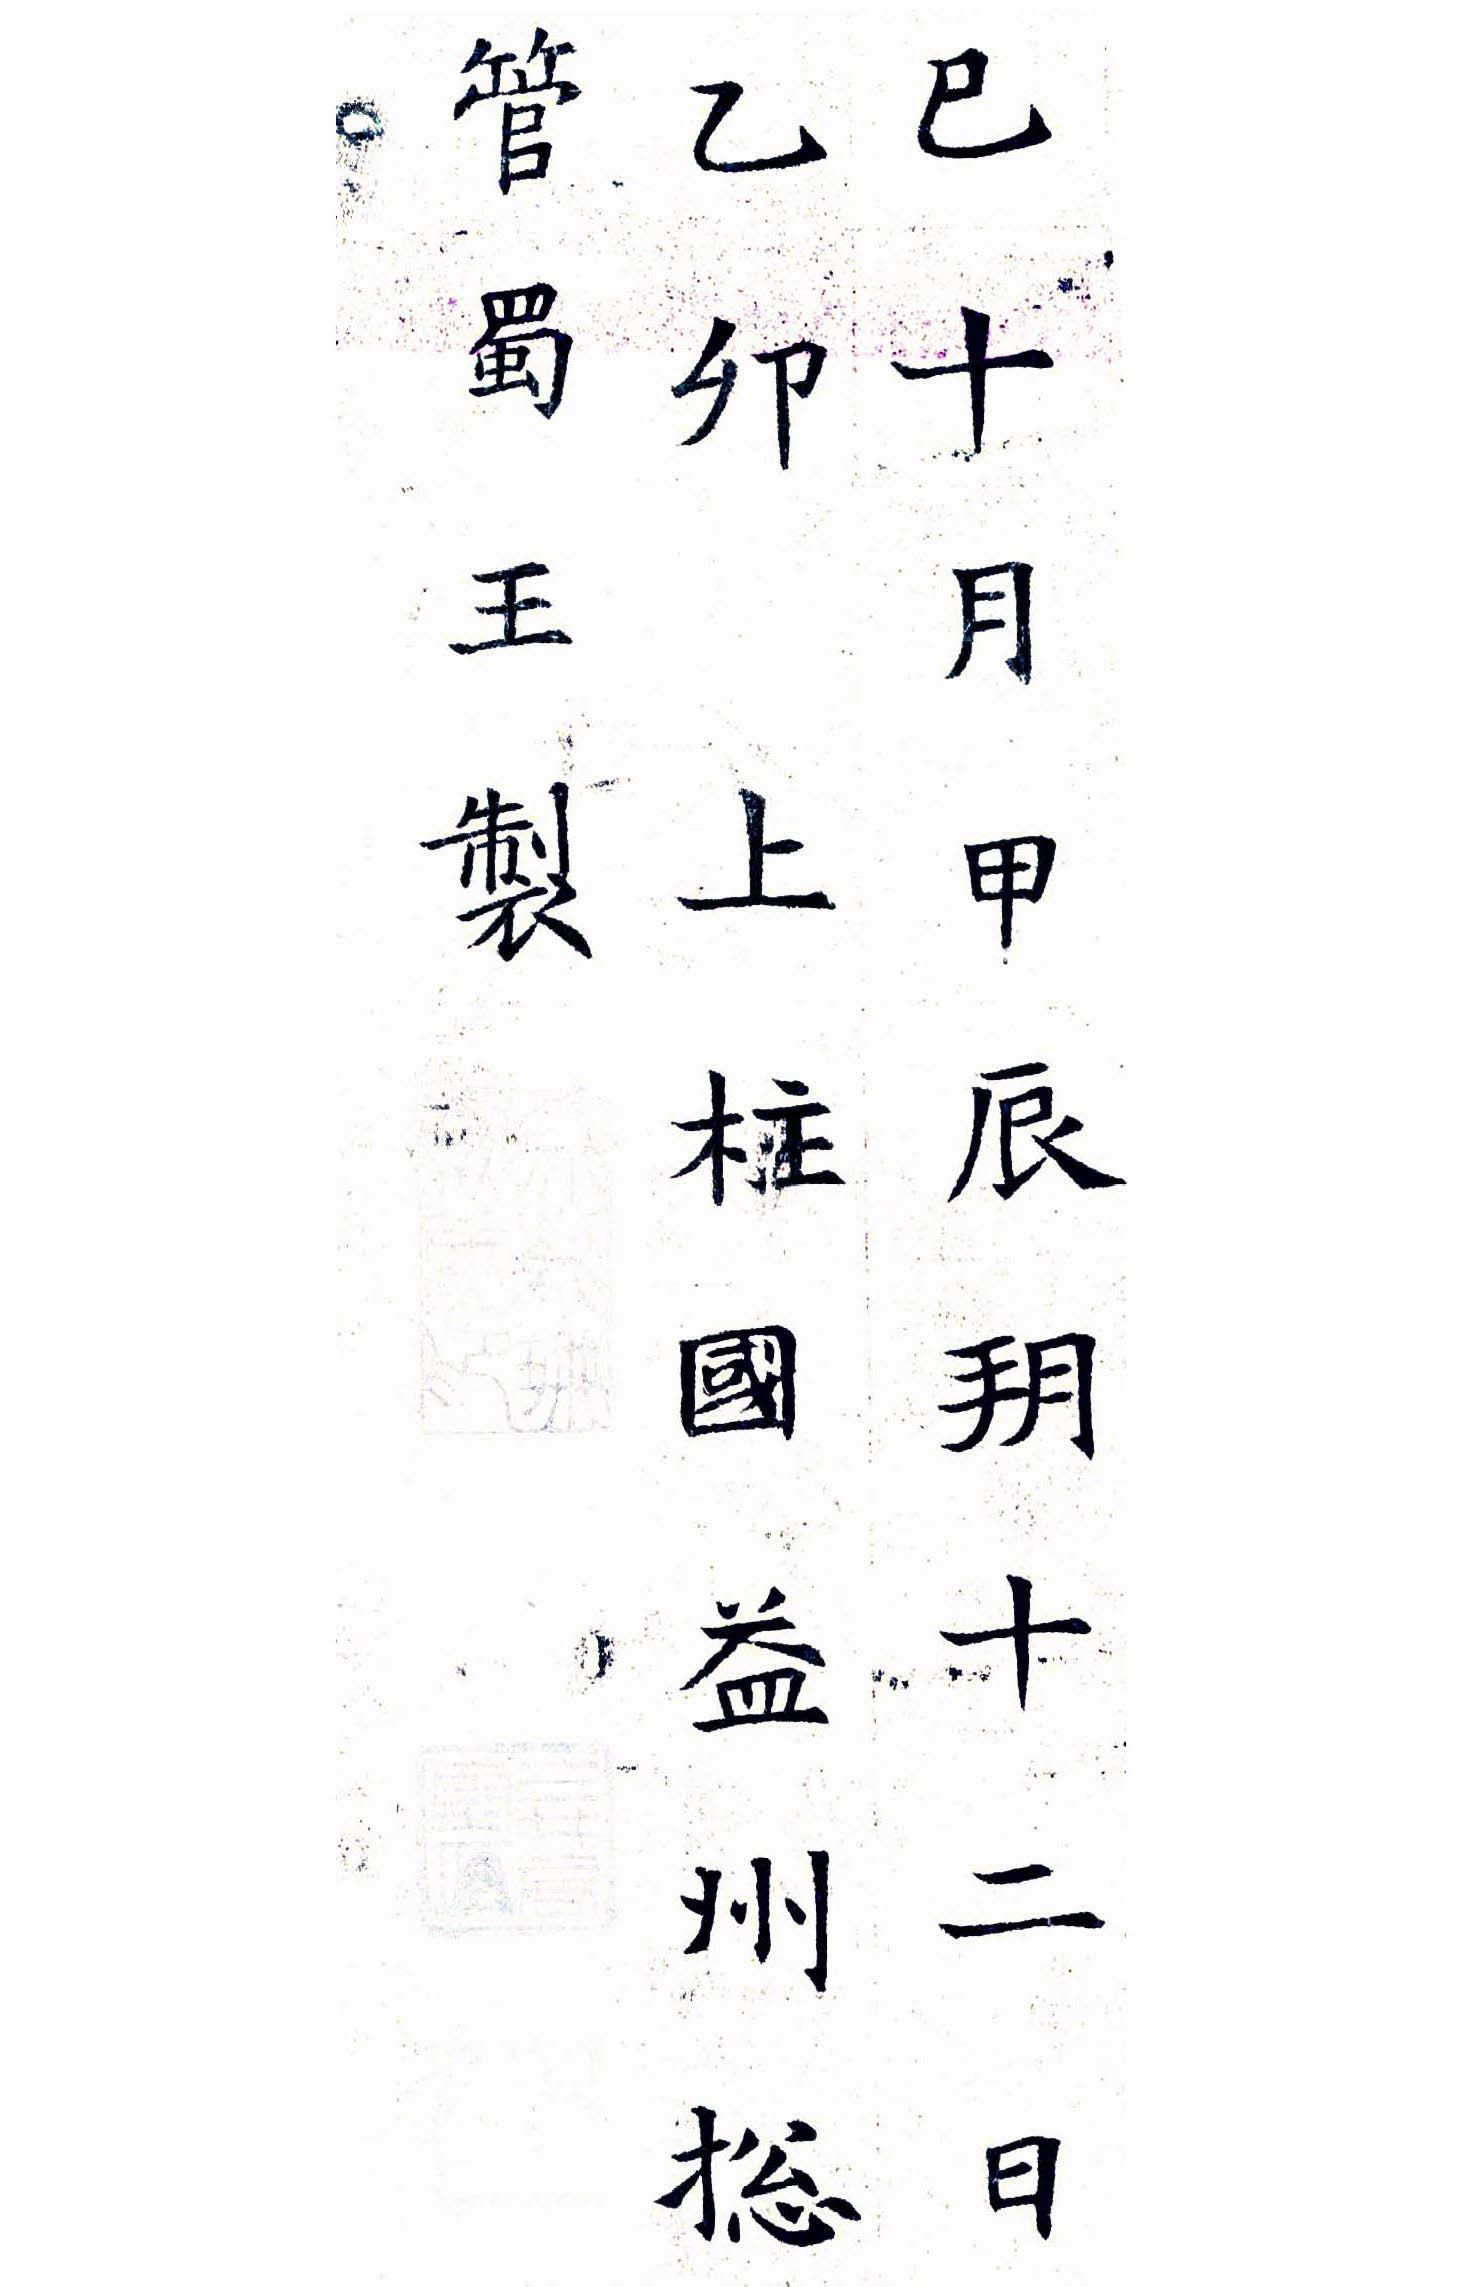 巳十月甲辰朔十二日
乙卯　上柱國益州捴
管蜀王製